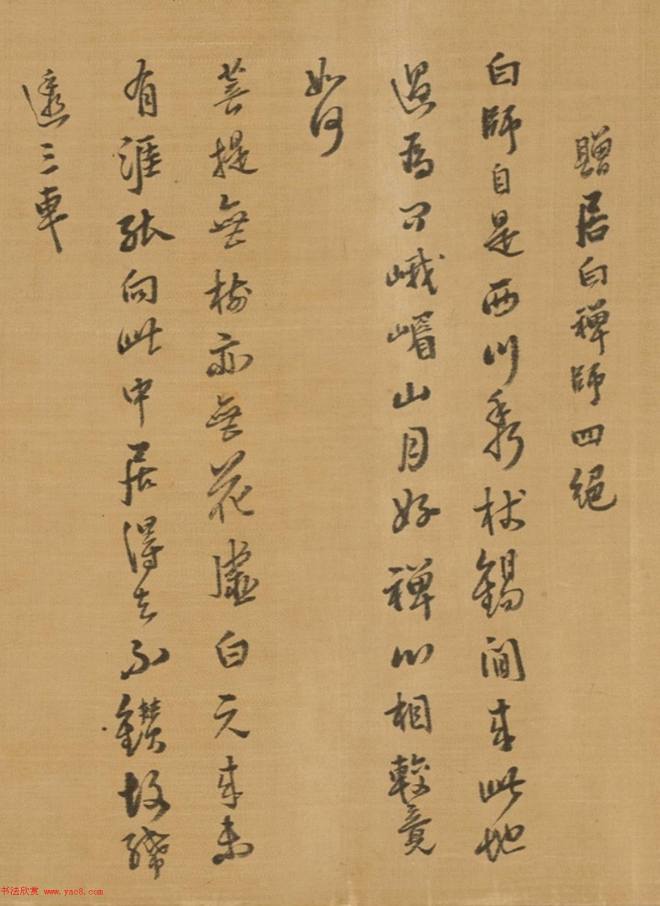 贈居白禪師四絕
白師自是西川秀杖錫閒來此地
過為口峨嵋山月好禪心相較竟
如何
菩提無樹亦無花虛白元來未
有涯強向此中居得去不鑽故紙
遶三車
书法欣赏 www.yac8.com